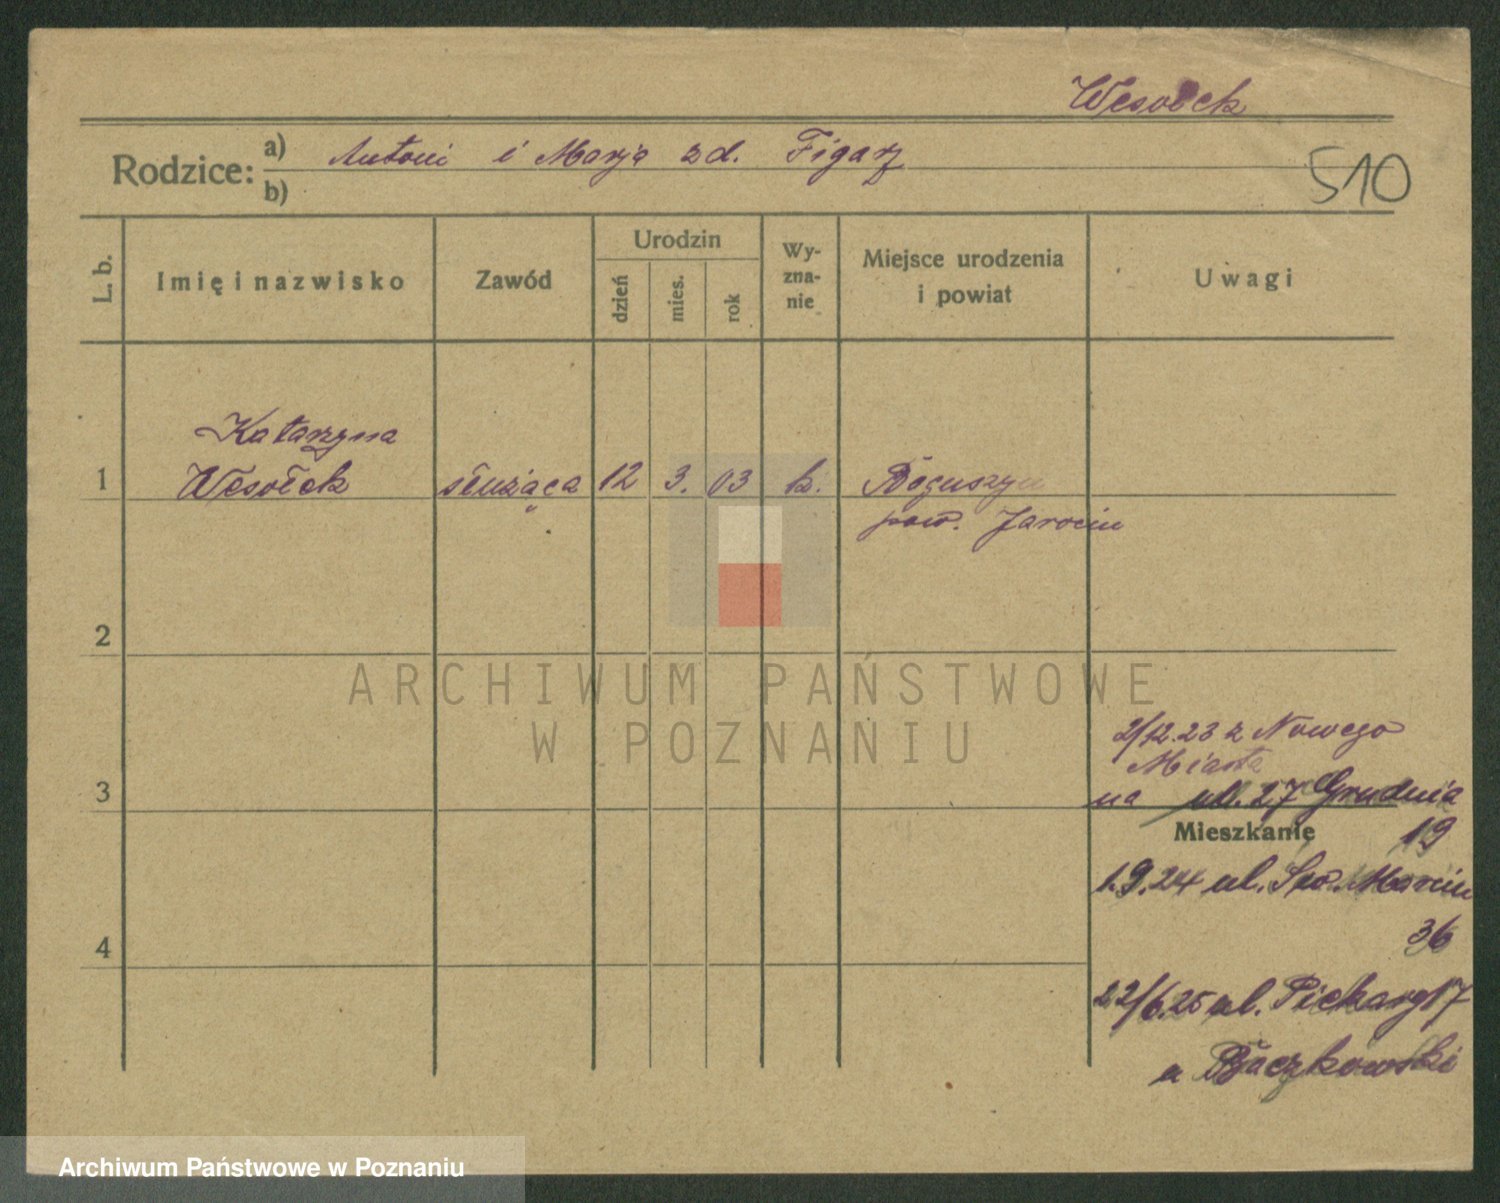 Wesołek
Rodzice: a) Antoni i Marja zd. Figarz
b)
510
L. b. Imię i nazwisko Zawód Urodzin dzień mies. rok Wy-zna-nie Miejsce urodzenia i powiat Uwagi
Katarzyna
1 Wesołek służąca 12 3. 03 k. Boguszyn
pow. Jarocin
2
ARCHIWUM PAŃSTWOWE
W POZNANIU
2/12.23 z Nowego
Miasta
3 na ul. 27 Grudnia
Mieszkanie 19
1.9.24 ul. Św. Marcin
36
4
22/6.25 ul. Piekary 17
u Baczkowski
Archiwum Państwowe w Poznaniu